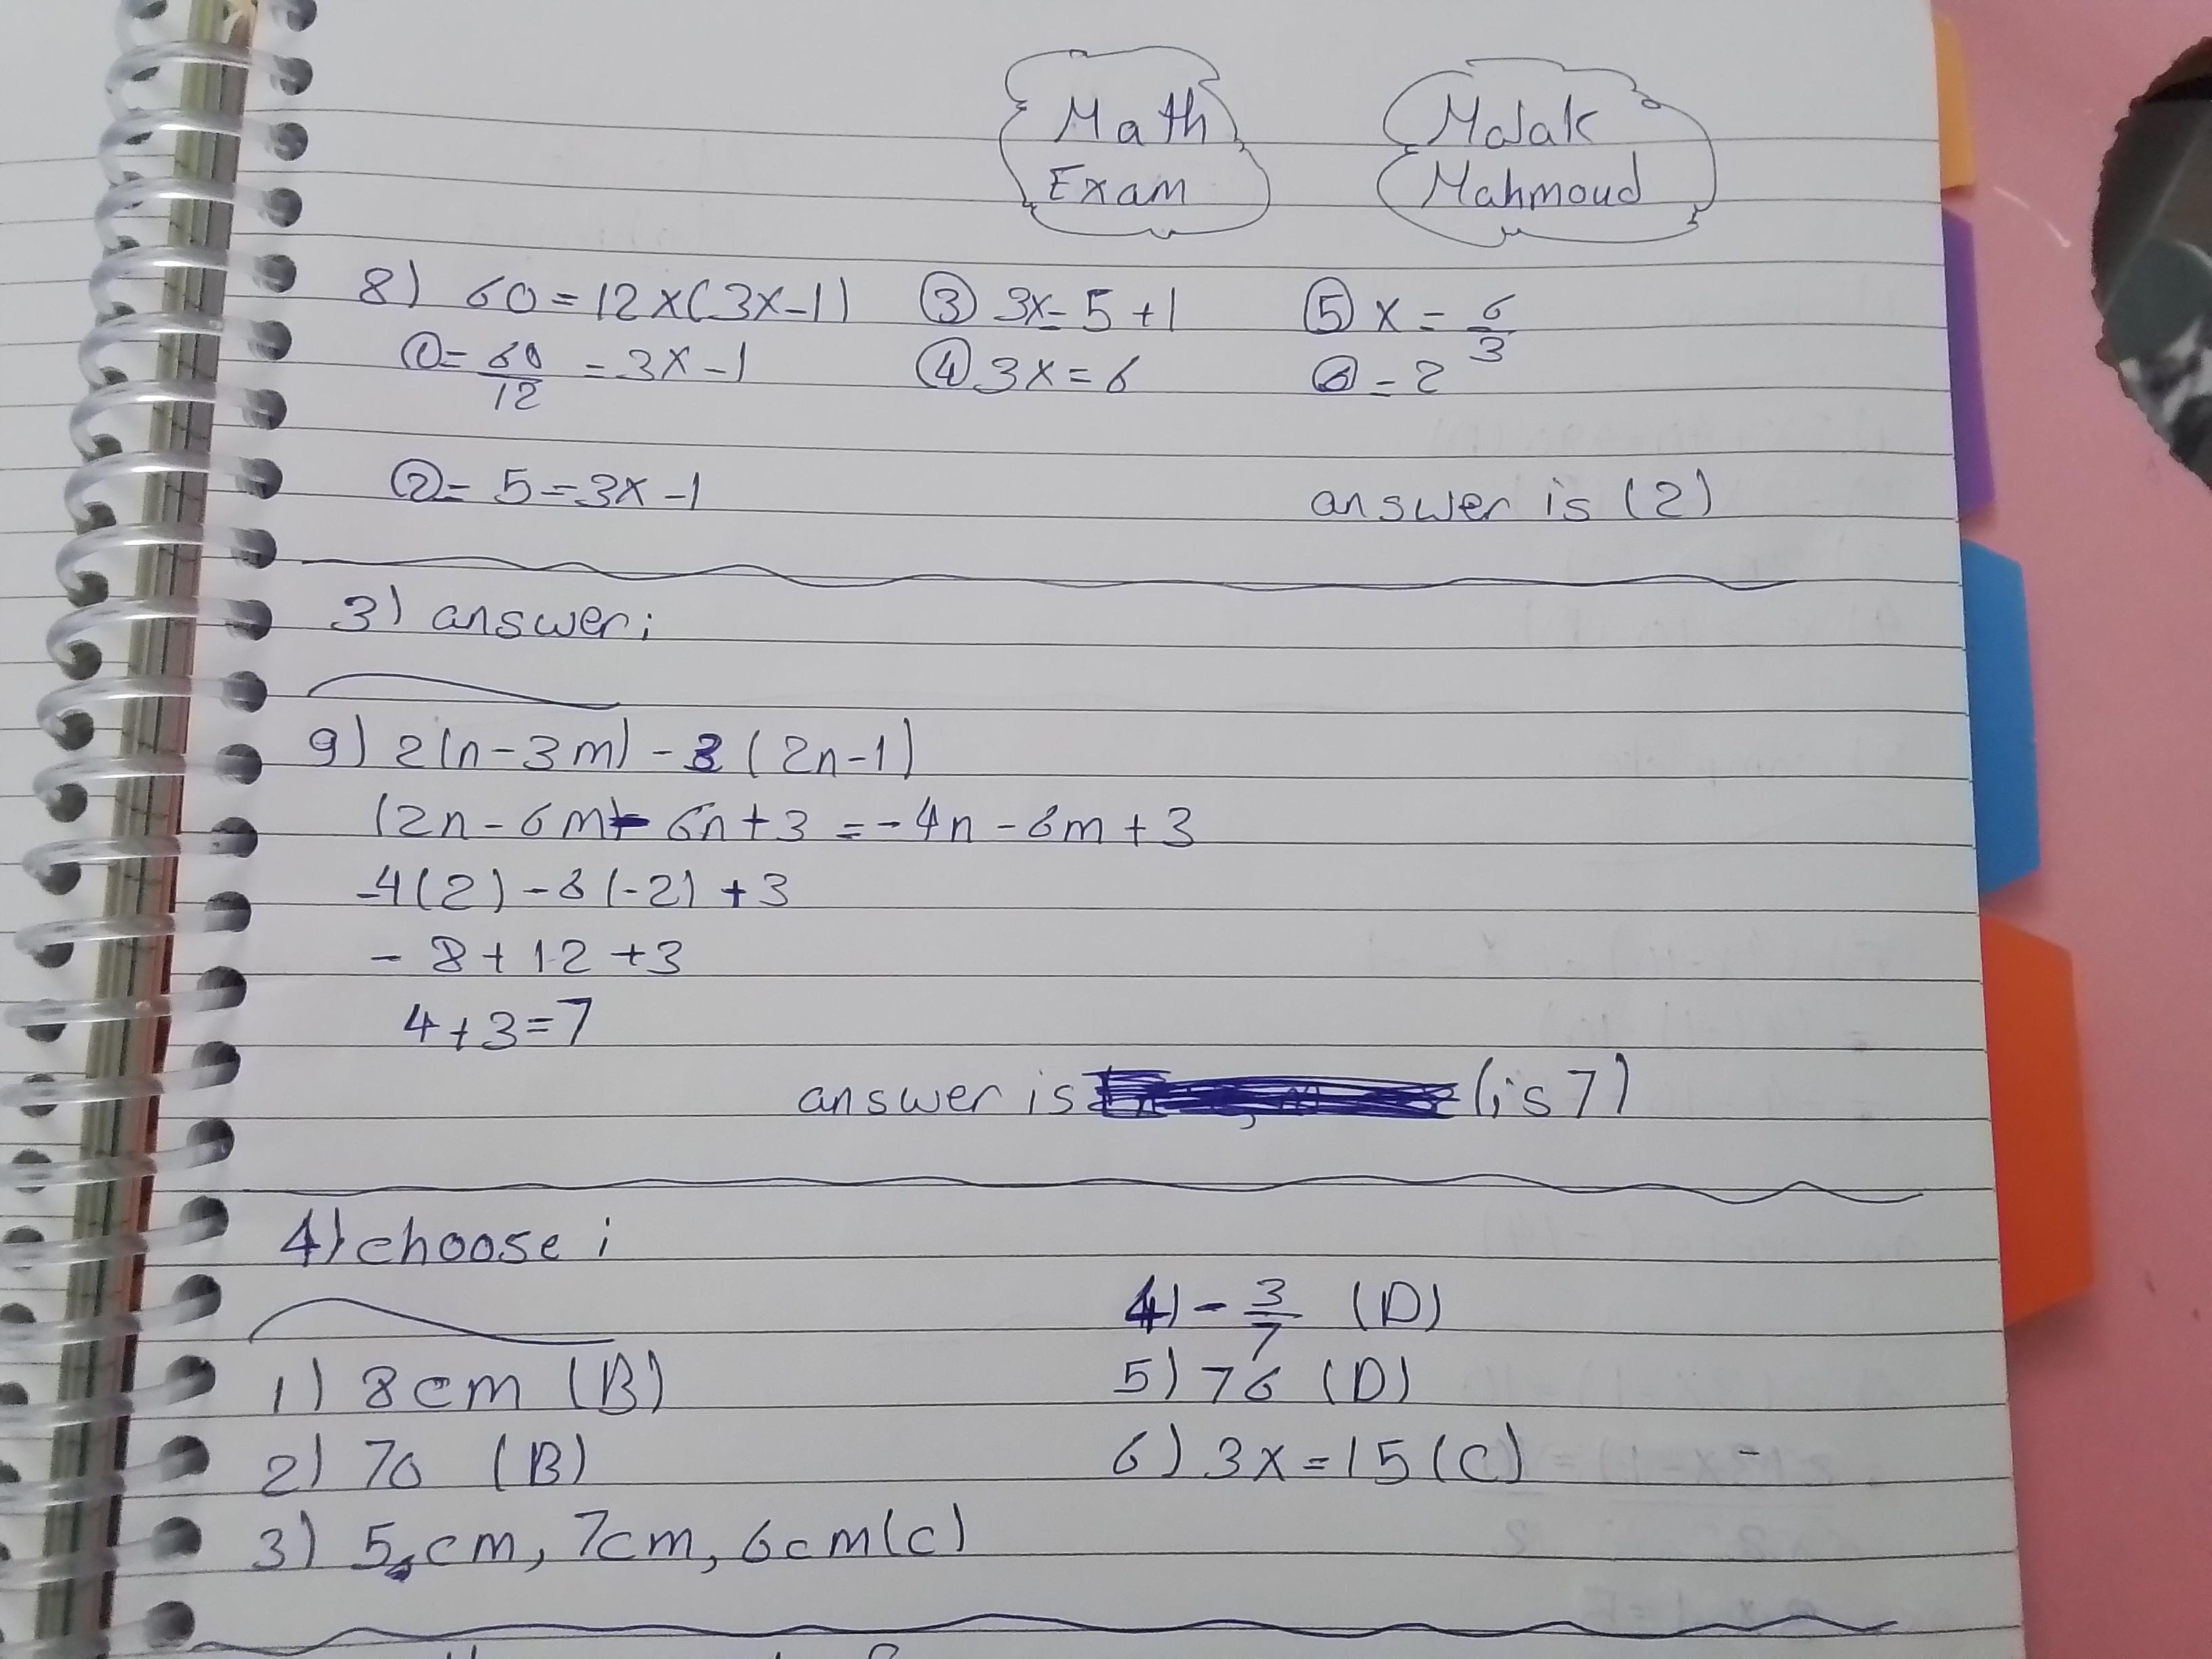 Math
Exam
Malak
Mahmoud
8) 60 = 12x(3x-1)
① = 60/12 = 3x-1
② = 5 = 3x-1
③ 3x = 5+1
④ 3x = 6
⑤ x = 6/3
⑥ = 2
answer is (2)
3) answer:
9) 2(n-3m) - 3(2n-1)
(2n-6m) - 6n+3 = -4n-6m+3
-4(2)-6(-2)+3
-8+12+3
4+3=7
answer is (is 7)
4) choose:
1) 8cm (B)
2) 70 (B)
3) 5cm, 7cm, 6cm (c)
4) -3/7 (D)
5) 76 (D)
6) 3x = 15 (C)